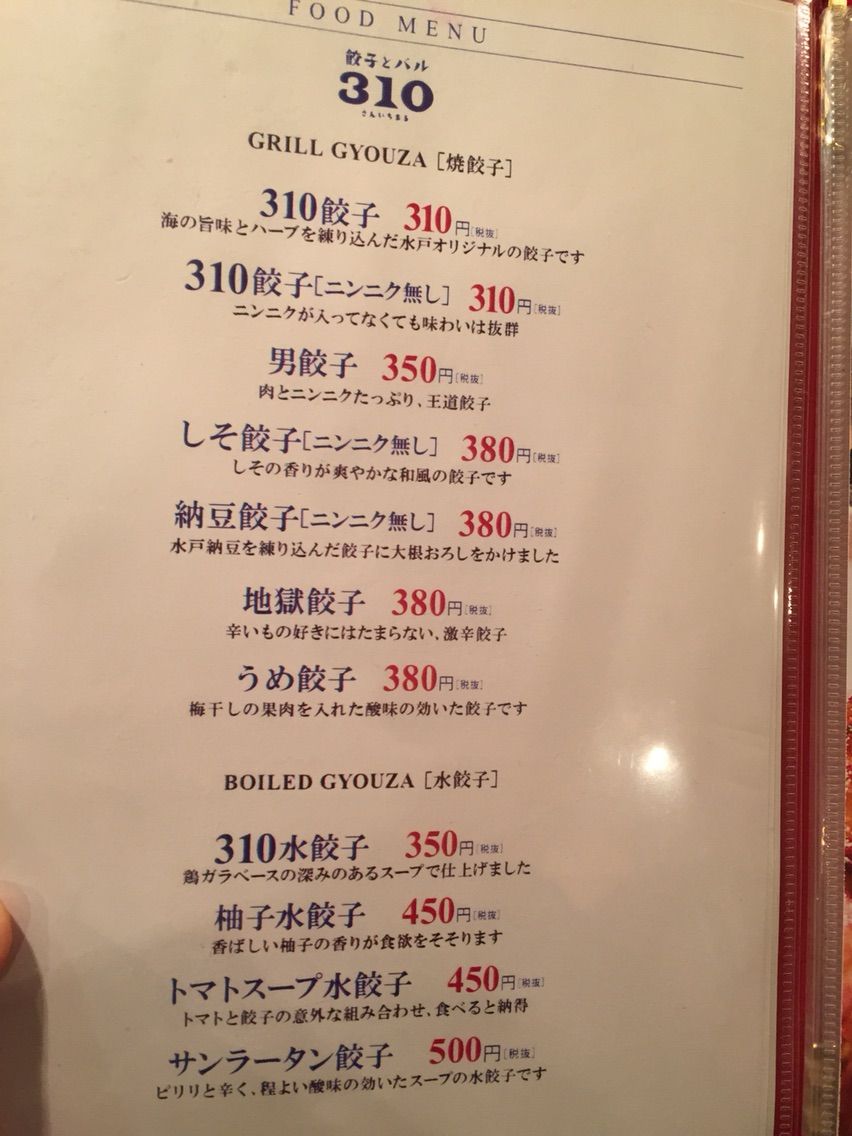 FOOD MENU
餃子とバル
310
さんいちまる
GRILL GYOUZA [焼餃子]
310餃子 310円[税抜]
海の旨味とハーブを練り込んだ水戸オリジナルの餃子です
310餃子[ニンニク無し] 310円[税抜]
ニンニクが入ってなくても味わいは抜群
男餃子 350円[税抜]
肉とニンニクたっぷり、王道餃子
しそ餃子[ニンニク無し] 380円[税抜]
しその香りが爽やかな和風の餃子です
納豆餃子[ニンニク無し] 380円[税抜]
水戸納豆を練り込んだ餃子に大根おろしをかけました
地獄餃子 380円[税抜]
辛いもの好きにはたまらない、激辛餃子
うめ餃子 380円[税抜]
梅干しの果肉を入れた酸味の効いた餃子です
BOILED GYOUZA [水餃子]
310水餃子 350円[税抜]
鶏ガラベースの深みのあるスープで仕上げました
柚子水餃子 450円[税抜]
香ばしい柚子の香りが食欲をそそります
トマトスープ水餃子 450円[税抜]
トマトと餃子の意外な組み合わせ、食べると納得
サンラータン餃子 500円[税抜]
ピリリと辛く、程よい酸味の効いたスープの水餃子です